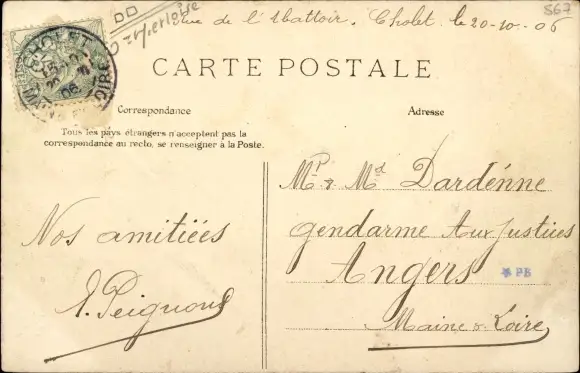 Rue de l'Abattoir, Cholet le 20-10-06
567
CHOLET
06
CARTE POSTALE
Correspondance
Adresse
Tous les pays étrangers n'acceptent pas la
correspondance au recto, se renseigner à la Poste.
Nos amitiées
Mr & Md Dardenne
gendarme Aux Justices
Angers
PB
Maine & Loire